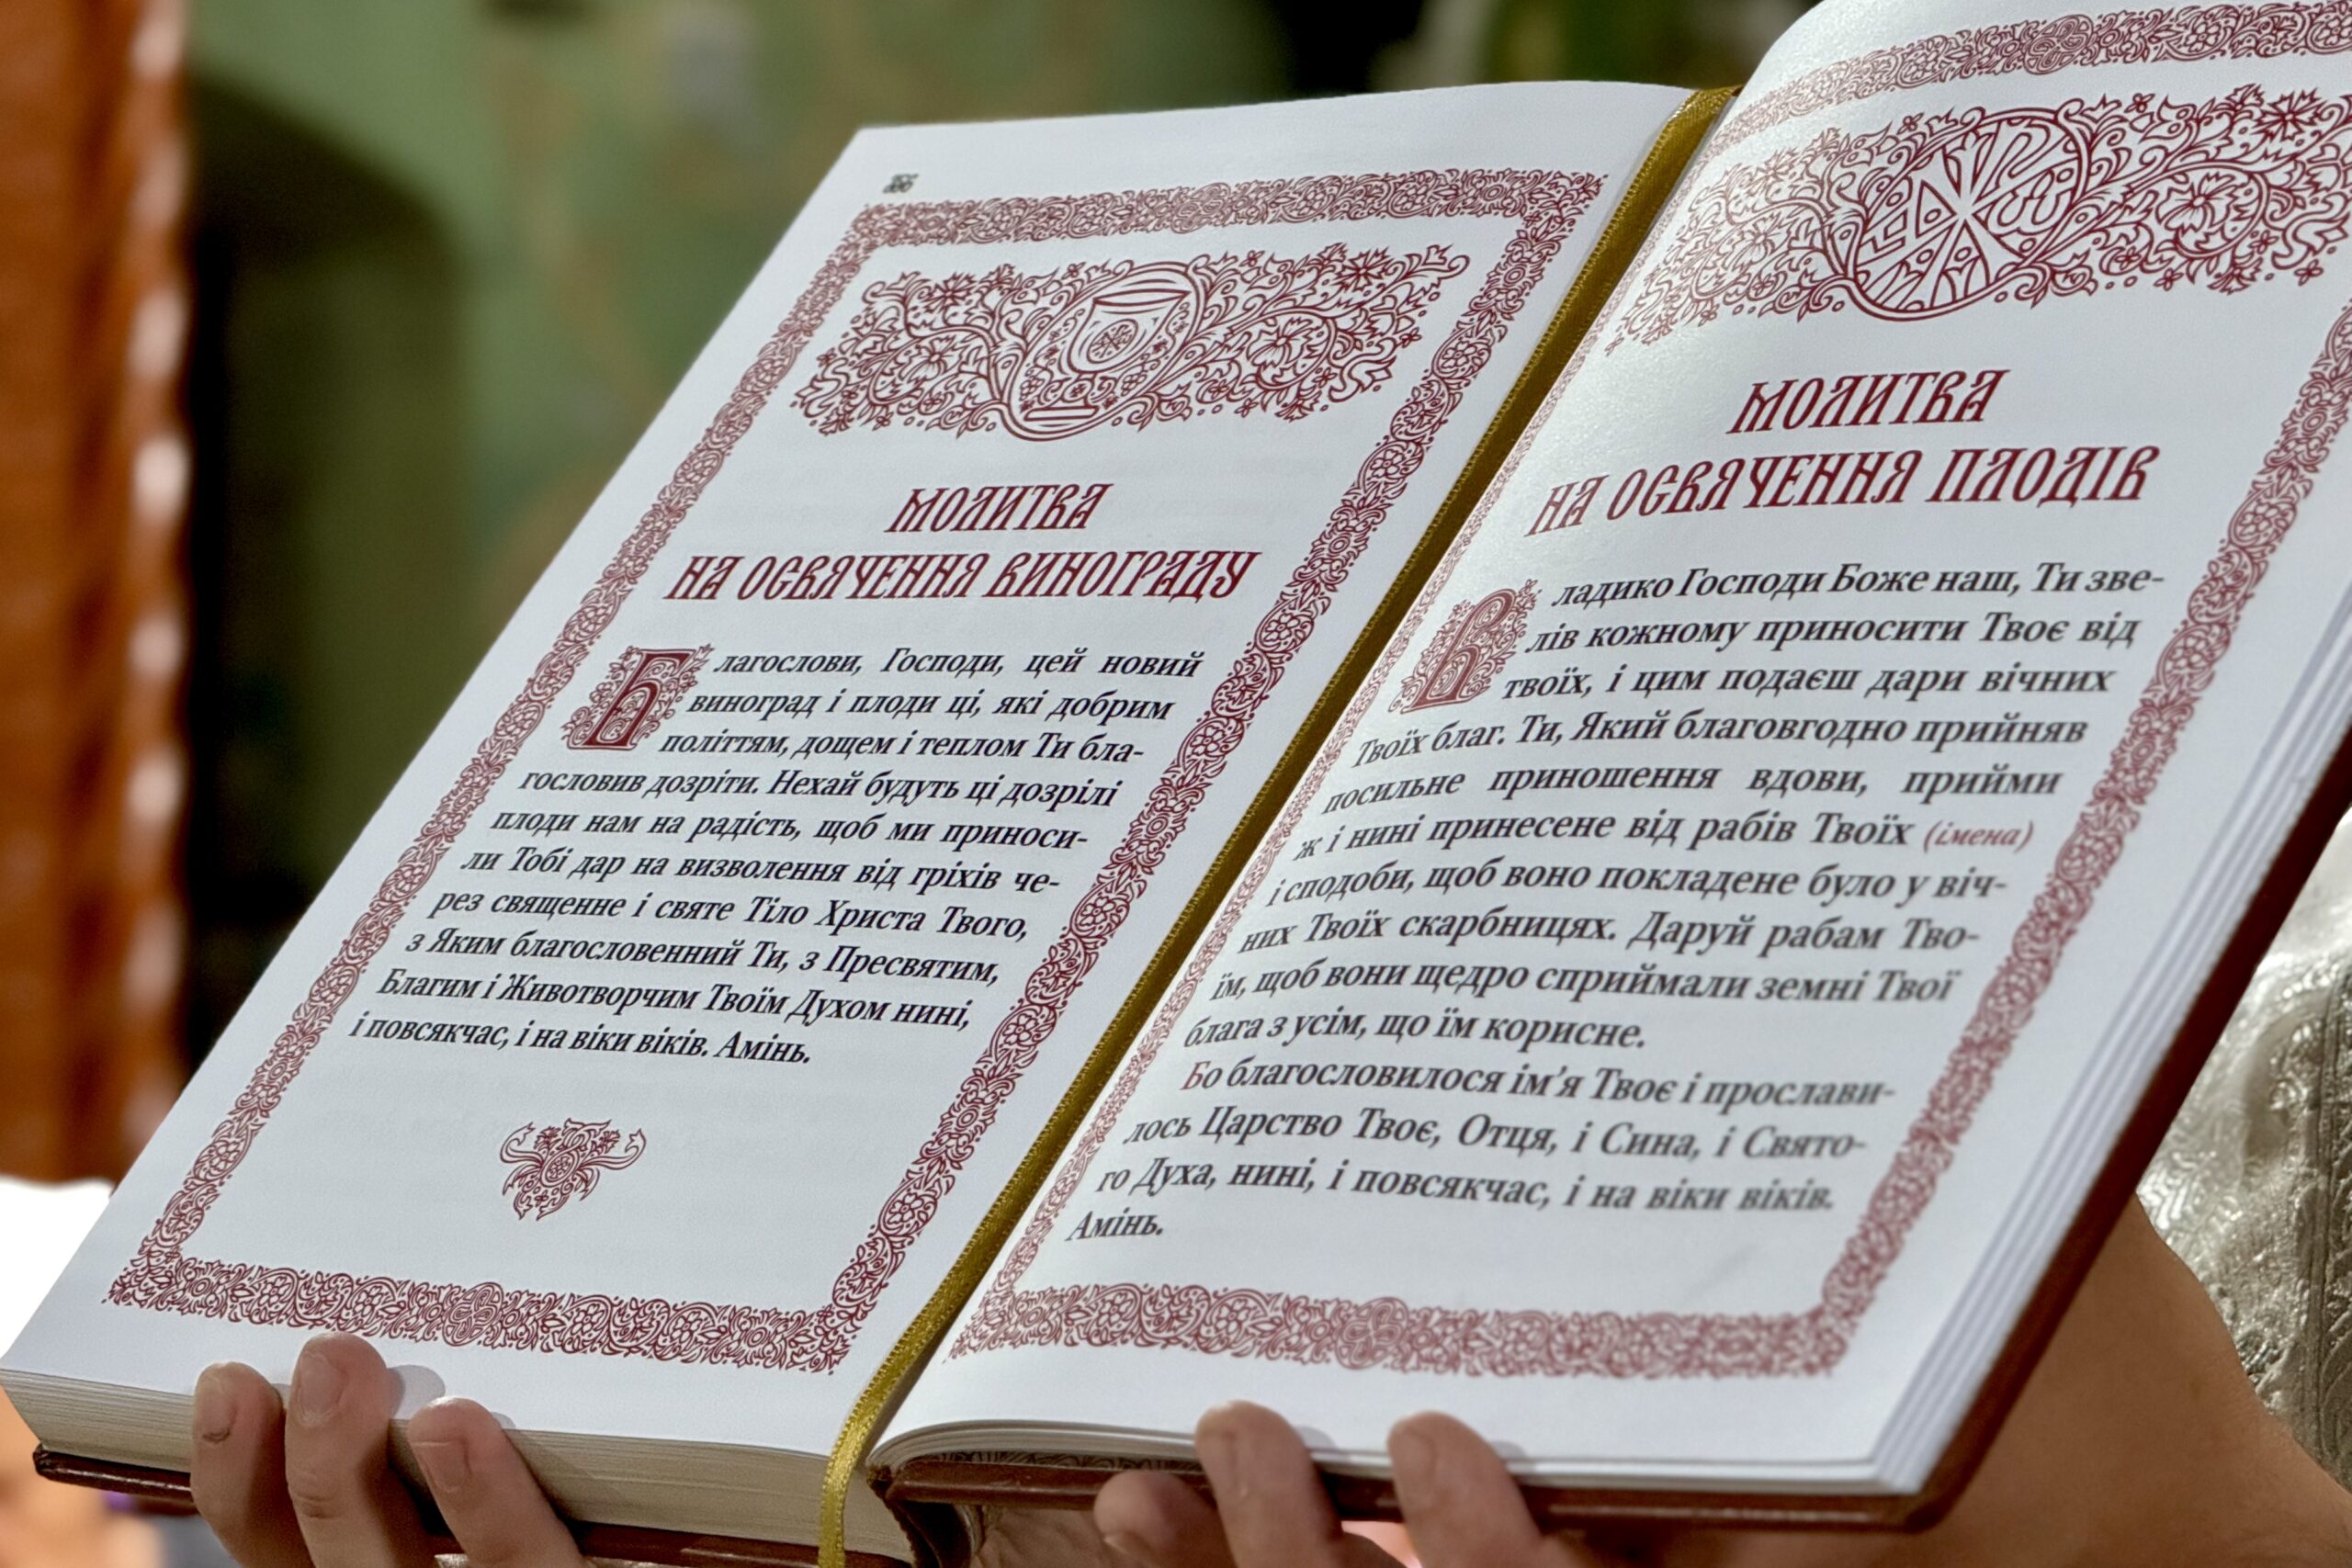 МОЛИТВА
НА ОСВЯЧЕННЯ ВИНОГРАДУ
Благослови, Господи, цей новий
виноград і плоди ці, які добрим
політтям, дощем і теплом Ти бла-
гословив дозріти. Нехай будуть ці дозрілі
плоди нам на радість, щоб ми приноси-
ли Тобі дар на визволення від гріхів че-
рез священне і святе Тіло Христа Твого,
з Яким благословенний Ти, з Пресвятим,
Благим і Животворчим Твоїм Духом нині,
і повсякчас, і на віки віків. Амінь.
МОЛИТВА
НА ОСВЯЧЕННЯ ПЛОДІВ
Владико Господи Боже наш, Ти зве-
лів кожному приносити Твоє від
твоїх, і цим подаєш дари вічних
Твоїх благ. Ти, Який благовгодно прийняв
посильне приношення вдови, прийми
ж і нині принесене від рабів Твоїх (імена)
і сподоби, щоб воно покладене було у віч-
них Твоїх скарбницях. Даруй рабам Тво-
їм, щоб вони щедро сприймали земні Твої
блага з усім, що їм корисне.
Бо благословилося ім’я Твоє і прослави-
лось Царство Твоє, Отця, і Сина, і Свято-
го Духа, нині, і повсякчас, і на віки віків.
Амінь.